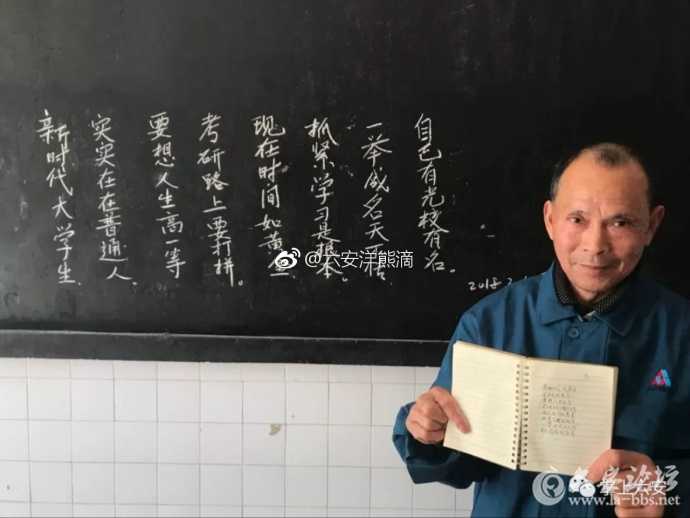 新时代大学生.
实实在在普通人.
要想人生高一等
考研路上要打拼。
现在时间如黄金
抓紧学习是根本。
一举成名天下
自己有光校有名。
2018.
@六安洋熊滴
六安论坛
掌上六安
www.la-bbs.net